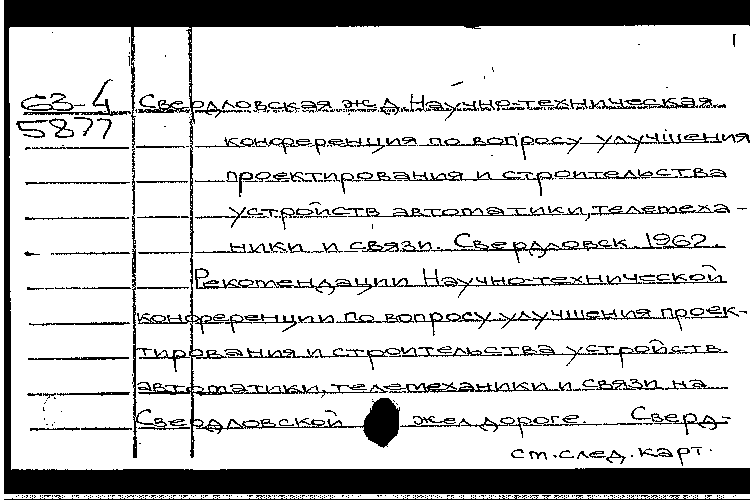 1
63-4 Свердловская ж.д. Научно-техническая
5877
конференция по вопросу улучшения
проектирования и строительства
устройств автоматики, телемеха-
ники и связи. Свердловск. 1962.
Рекомендации Научно-технической
конференции по вопросу улучшения проек-
тирования и строительства устройств
автоматики, телемеханики и связи на
Свердловской жел.дороге. Сверд-
ст.след.карт.